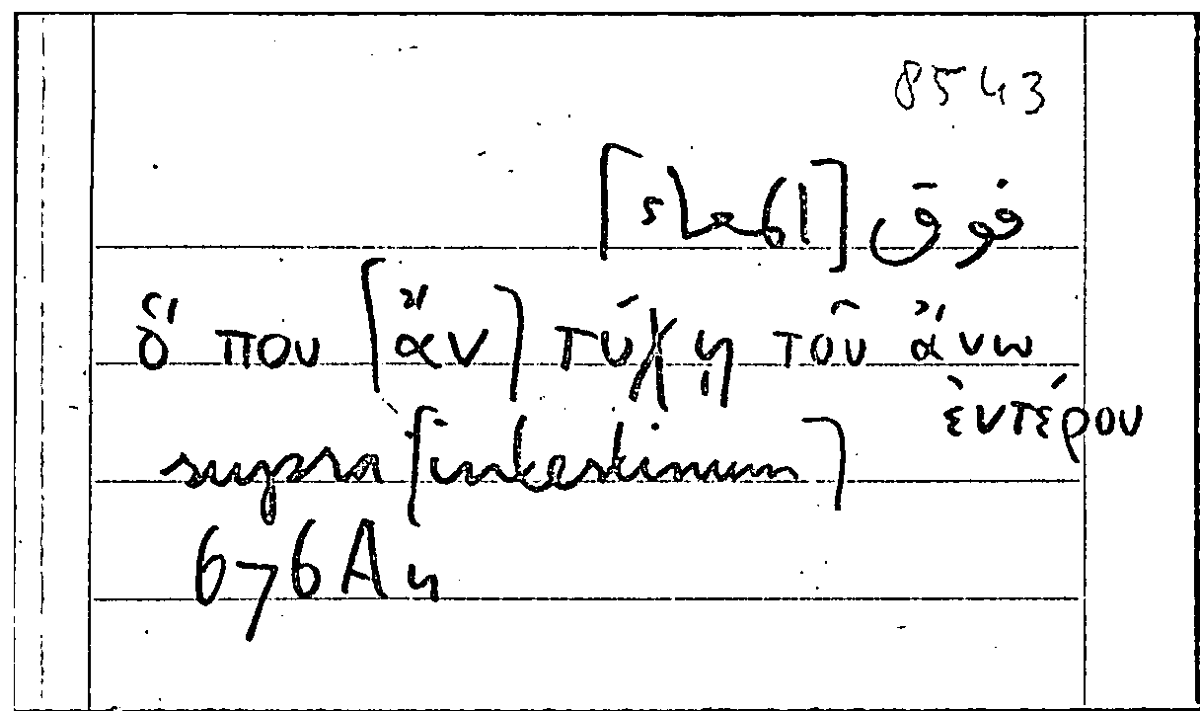 8543
فوق [الأمعاء]
ὅ που [ἂν] τύχῃ τοῦ ἄνω
ἐντέρου
supra [intestinum]
676A4